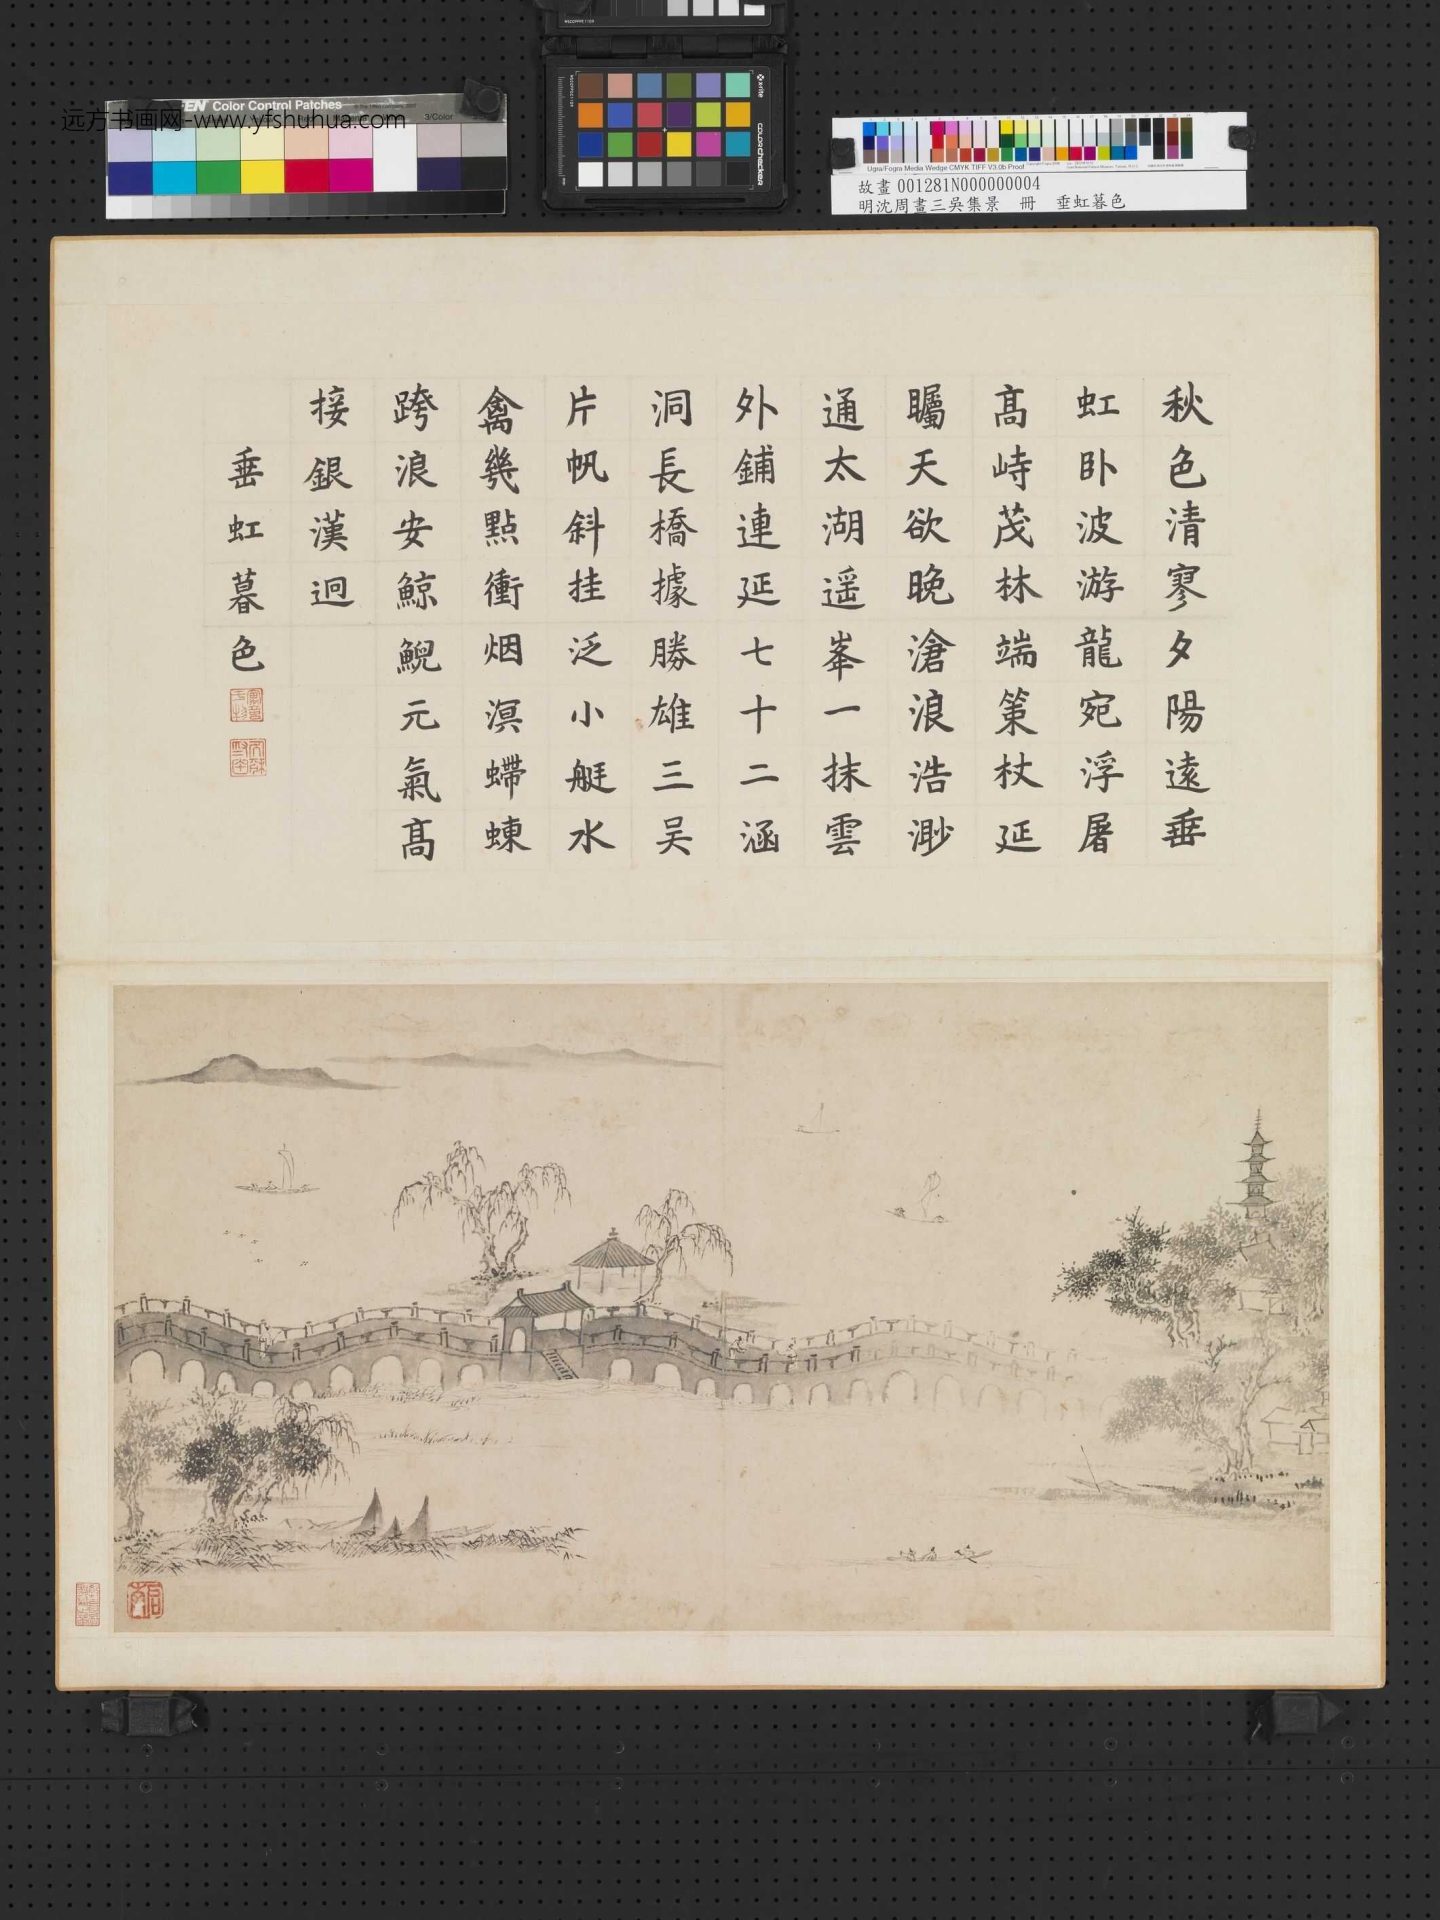 MSCCPPCC1108
Color Control Patches
3/Color
远方书画网-www.yfshuhua.com
x-rite
colorchecker
Ugra/Fogra Media Wedge CMYK TIFF V3.0b Proof
故畫 001281N000000004
明沈周畫三吳集景 冊 垂虹暮色
秋色清寥夕陽遠垂
虹卧波游龍宛浮屠
髙峙茂林端策杖延
矚天欲晚滄浪浩渺
通太湖遥峯一抹雲
外鋪連延七十二涵
洞長橋據勝雄三吴
片帆斜挂泛小艇水
禽幾點衝烟溟螮蝀
跨浪安鯨鯢元氣髙
接銀漢迥
垂虹暮色